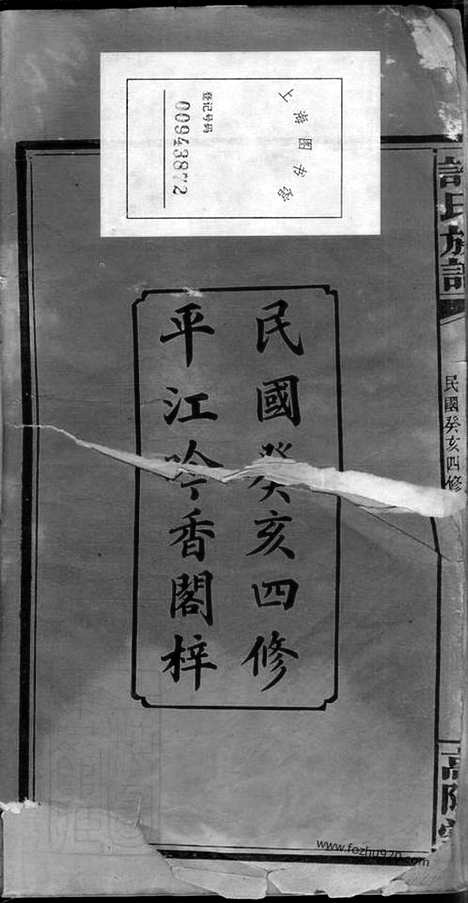 上海图书馆
登记号码
00943872
民國癸亥四修
平江吟香閣梓
許氏族譜
民國癸亥四修
高陽堂
www.fozhu920.com